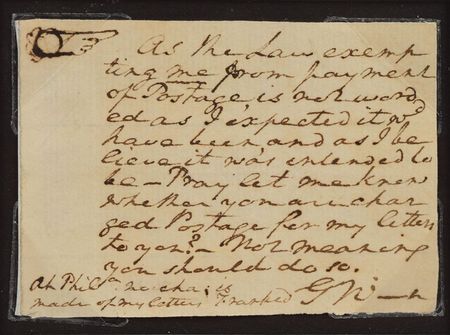 As the Law exemp
ting me from payment
of Postage is not word
ed as I expected it wd
have been and as I be
lieve it was intended to
be - Pray let me know
whether you are char
ged Postage for my letters
to you? - Not meaning
you should do so.
At Phila no cha: is
made of my letters Franked
G W—n